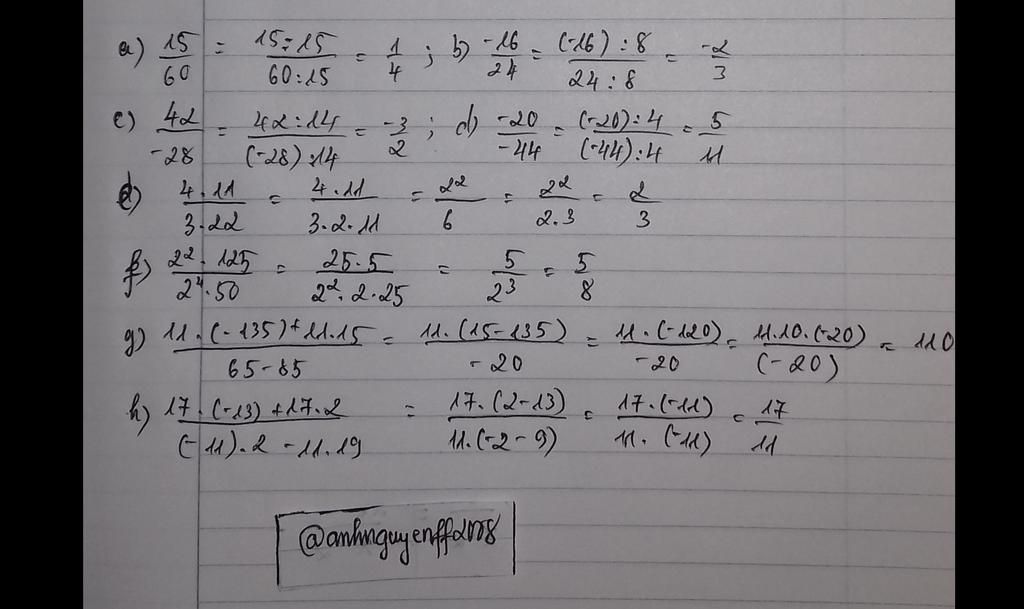 a) 15/60 = 15:15/60:15 = 1/4 ; b) -16/24 = (-16):8/24:8 = -2/3
c) 42/-28 = 42:14/(-28):14 = -3/2 ; d) -20/-44 = (-20):4/(-44):4 = 5/11
e) 4.11/3.22 = 4.11/3.2.11 = 22/6 = 22/2.3 = 2/3
f) 2².125/2⁴.50 = 25.5/2².2.25 = 5/2³ = 5/8
g) 11.(-135)+11.15/65-85 = 11.(15-135)/-20 = 11.(-120)/-20 = 11.10.(-20)/(-20) = 110
h) 17.(-13)+17.2/(-11).2-11.19 = 17.(2-13)/11.(-2-9) = 17.(-11)/11.(-11) = 17/11
@anhnguyenff2008